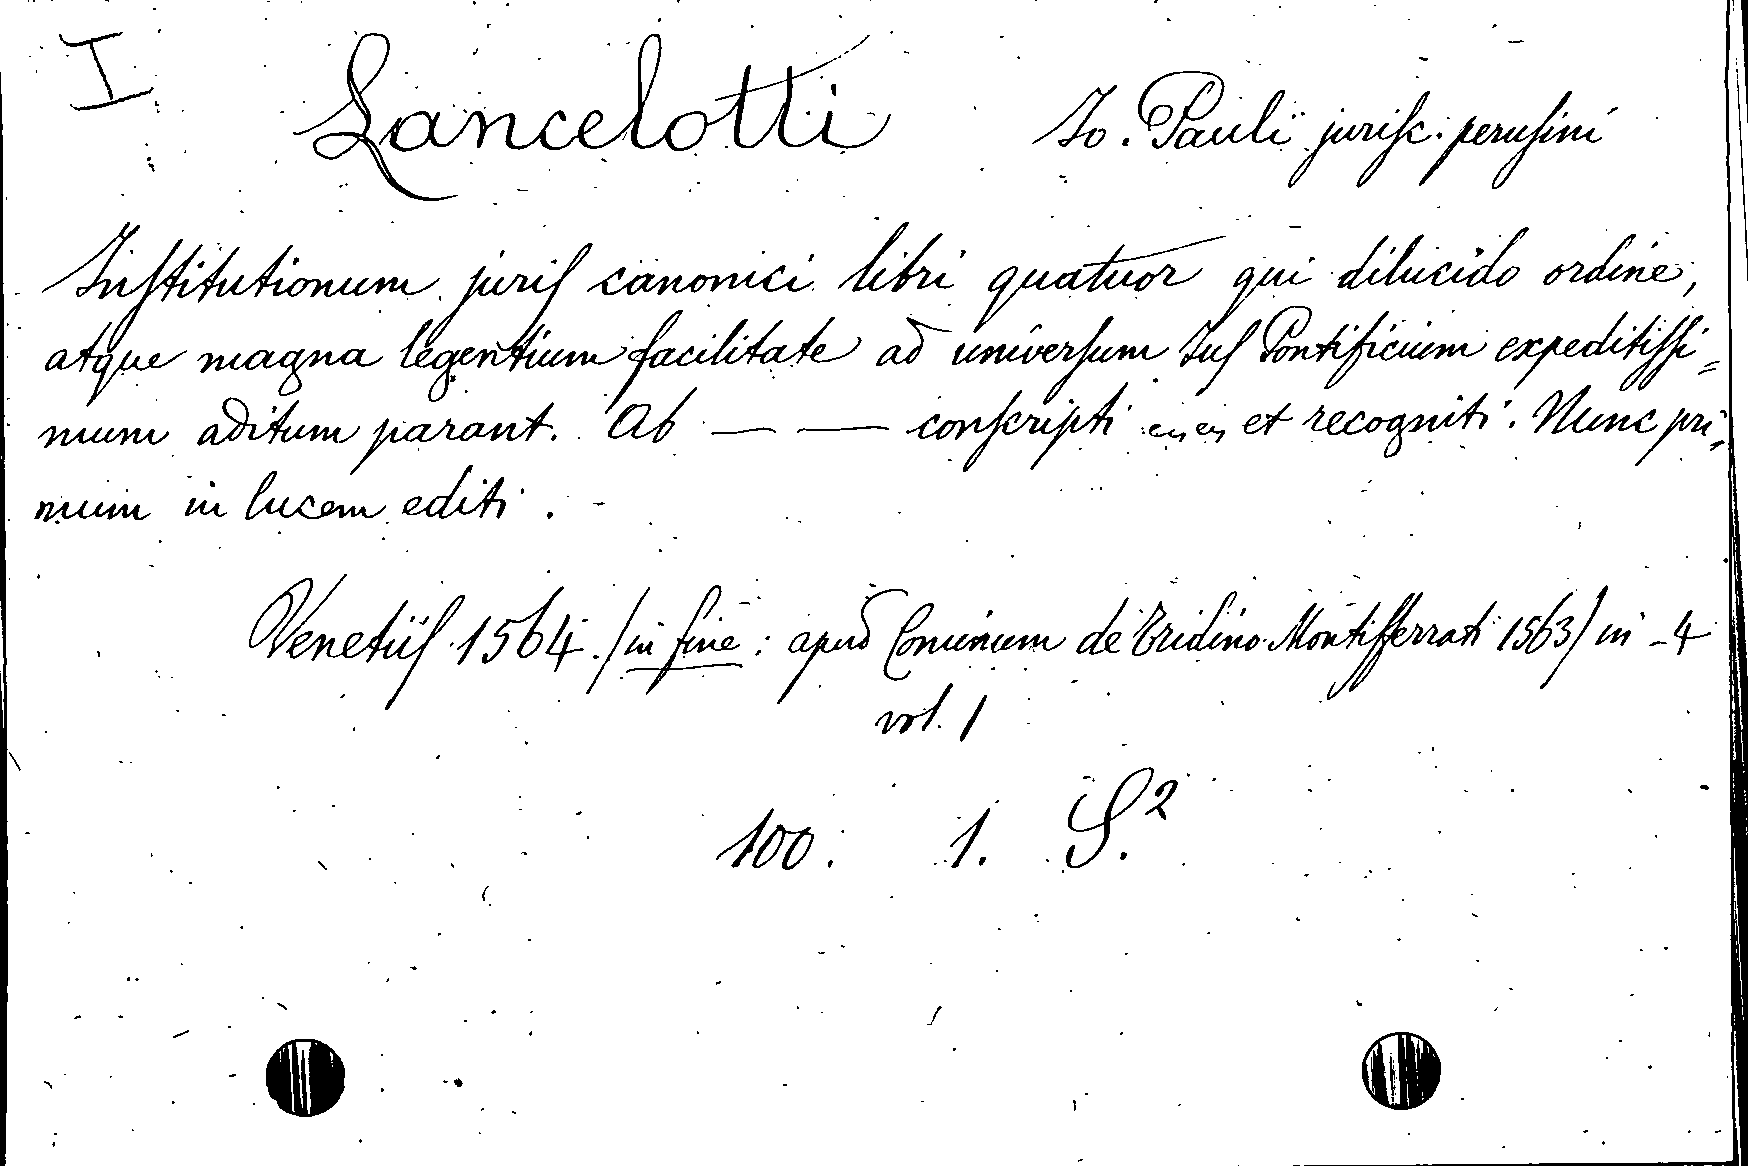 I
Lancelotti Jo. Pauli juriſc. peruſini
Inſtitutionum juriſ canonici libri quatuor qui dilucido ordine,
atque magna legentium facilitate ad univerſum Juſ Pontificium expeditiſſi=
mum aditum parant. Ab — — conſcripti et recogniti. Nunc pri=
mum in lucem editi.
Venetiiſ 1564. / in fine : apud Cominum de Tridino Montiſferrati 1563/ in-4
vol. 1
100. 1. S.²